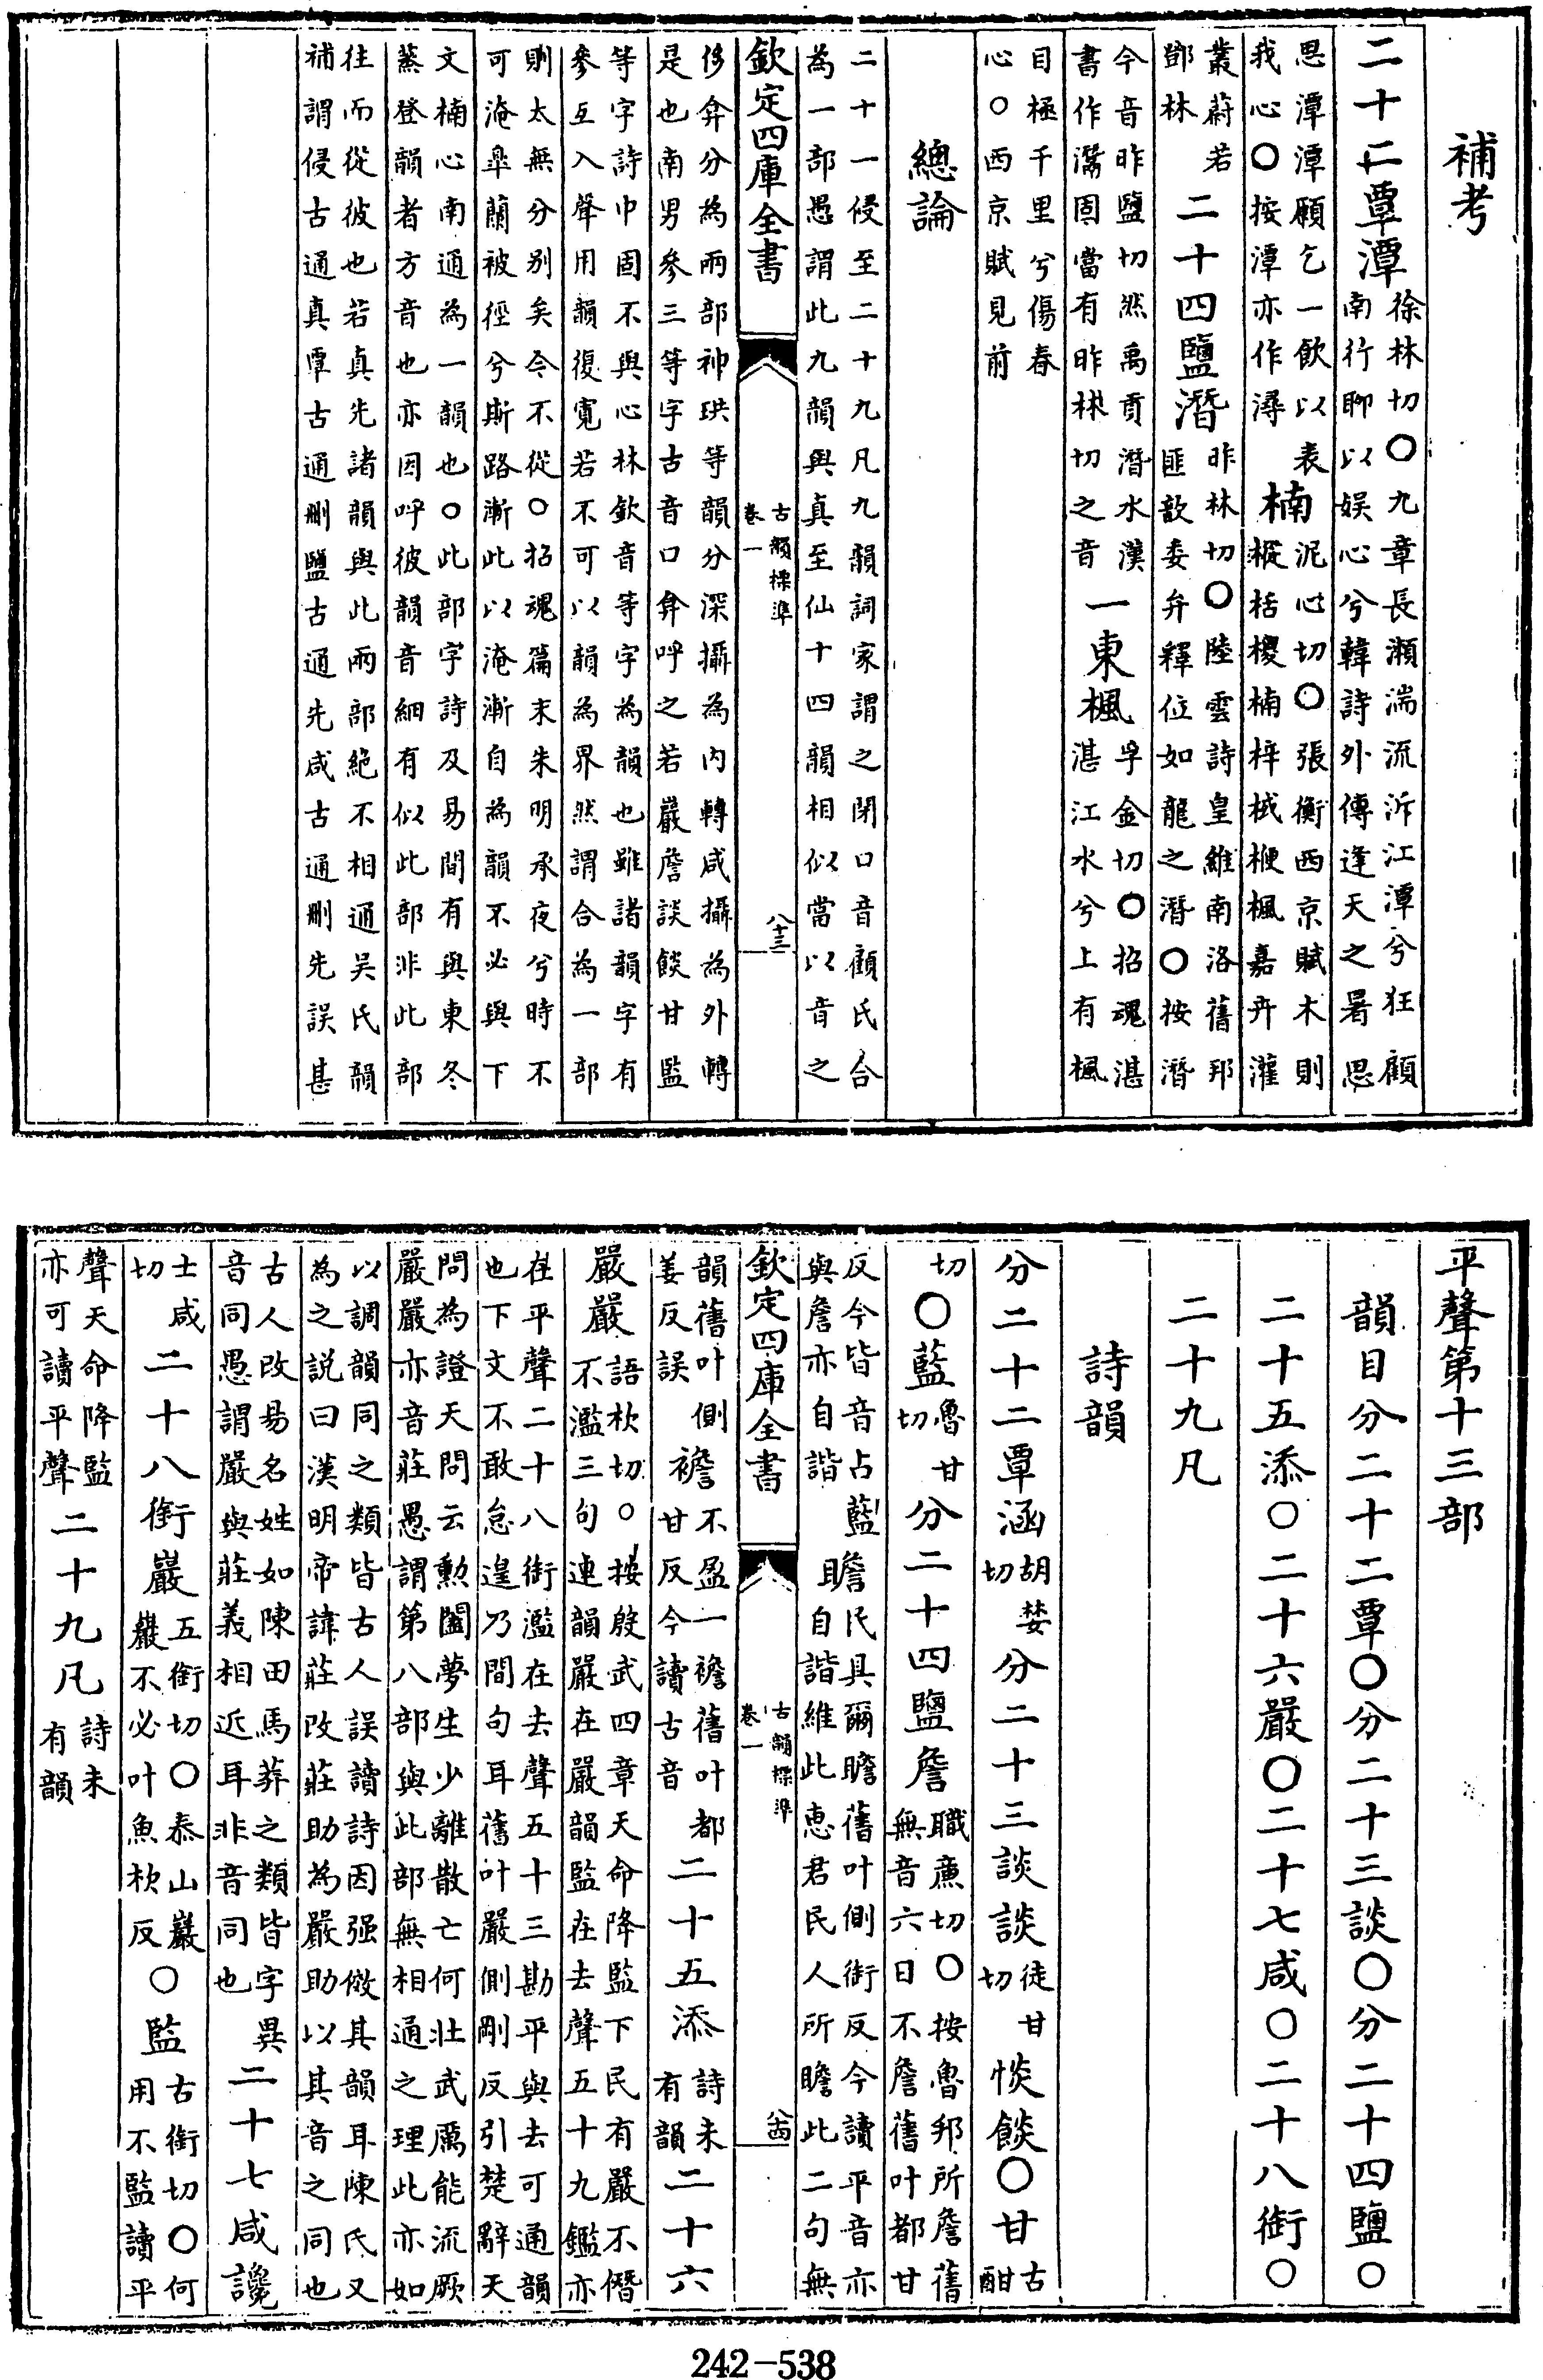 補考
二十二覃潭徐林切○九章長瀨湍流泝江潭兮狂顧
南行聊以娱心兮韓詩外傳逢天之暑思
思潭潭願乞一飲以表
我心○按潭亦作潯
楠泥心切○張衡西京賦木則
樅栝椶楠梓棫楩楓嘉卉灌
叢蔚若
鄧林
二十四鹽潛昨林切○陸雲詩皇維南洛舊邦
匪歆委弁釋位如龍之潛○按潛
今音昨鹽切然禹貢潛水漢
書作灊固當有昨林切之音
一東楓孚金切○招魂湛
湛江水兮上有楓
目極千里兮傷春
心○西京賦見前
總論
二十一侵至二十九凡九韻詞家謂之閉口音顧氏合
為一部愚謂此九韻與真至仙十四韻相似當以音之
欽定四庫全書
古韻標準
卷一
八十三
侈弇分為兩部神珙等韻分深攝為內轉咸攝為外轉
是也南男參三等字古音口弇呼之若巖詹談餤甘監
等字詩中固不與心林欽音等字為韻也雖諸韻字有
參互入聲用韻復寬若不可以韻為界然謂合為一部
則太無分别矣今不從○招魂篇末朱明承夜兮時不
可淹臯蘭被徑兮斯路漸此以淹漸自為韻不必與下
文楠心南通為一韻也○此部字詩及易間有與東冬
蒸登韻者方音也亦因呼彼韻音細有似此部非此部
往而從彼也若真先諸韻與此兩部絶不相通吳氏韻
補謂侵古通真覃古通刪鹽古通先咸古通刪先誤甚
平聲第十三部
韻目分二十二覃○分二十三談○分二十四鹽○
二十五添○二十六嚴○二十七咸○二十八銜○
二十九凡
詩韻
分二十二覃涵胡婪
切
分二十三談談徒甘
切
惔餤○甘古
酣
切
○藍魯甘
切
分二十四鹽詹職廉切○按魯邦所詹舊
無音六日不詹舊叶都甘
反今皆音占藍
與詹亦自諧
瞻民具爾瞻舊叶側銜反今讀平音亦
自諧維此惠君民人所瞻此二句無
欽定四庫全書
古韻標準
卷一
八十四
韻舊叶側
姜反誤
襜不盈一襜舊叶都
甘反今讀古音
二十五添詩未
有韻
二十六
嚴嚴語杴切○按殷武四章天命降監下民有嚴不僭
不濫三句連韻嚴在嚴韻監在去聲五十九鑑亦
在平聲二十八銜濫在去聲五十三勘平與去可通韻
也下文不敢怠遑乃間句耳舊叶嚴側剛反引楚辭天
問為證天問云勲闔夢生少離散亡何壯武厲能流厥
嚴嚴亦音莊愚謂第八部與此部無相通之理此亦如
以調韻同之類皆古人誤讀詩因强傚其韻耳陳氏又
為之説曰漢明帝諱莊改莊助為嚴助以其音之同也
古人改易名姓如陳田馬莽之類皆字異
音同愚謂嚴與莊義相近耳非音同也
二十七咸讒
士咸
切
二十八銜巖五銜切○泰山巖
巖不必叶魚杴反
○監古銜切○何
用不監讀平
聲天命降監
亦可讀平聲
二十九凡詩未
有韻
242-538